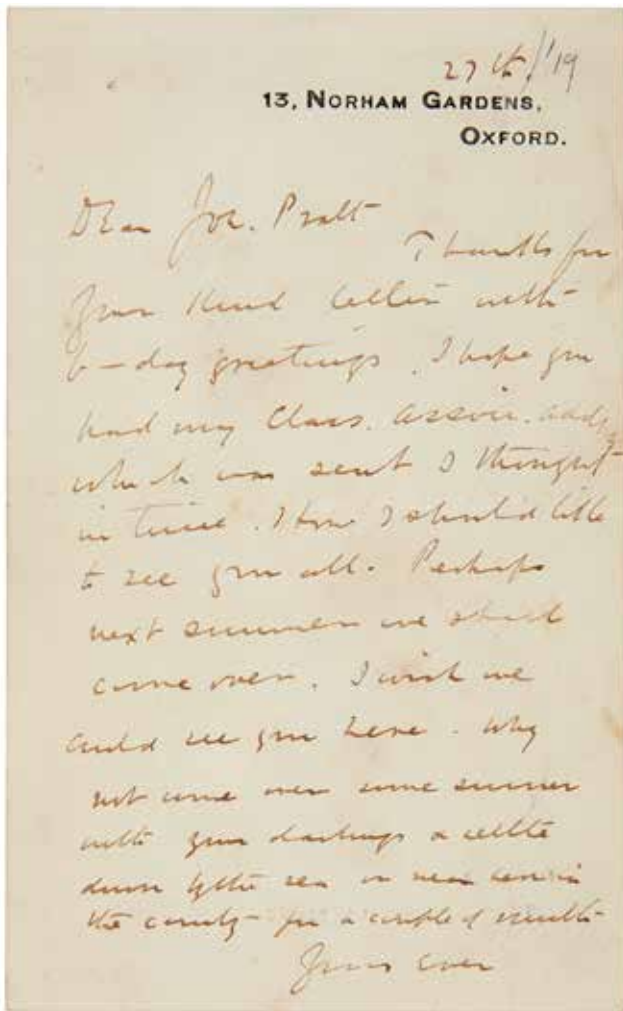 27th /'19
13, NORHAM GARDENS,
OXFORD.
Dear Joe. Pratt
Thanks for
your kind letter with
b-day greetings. I hope you
had my Class. Assoc. add
which was sent I thought
in time. How I should like
to see you all. Perhaps
next summer we shall
come over. I wish we
could see you here. Why
not come over some summer
with your darlings & settle
down by the sea or near here in
the country for a couple of months
Yours ever